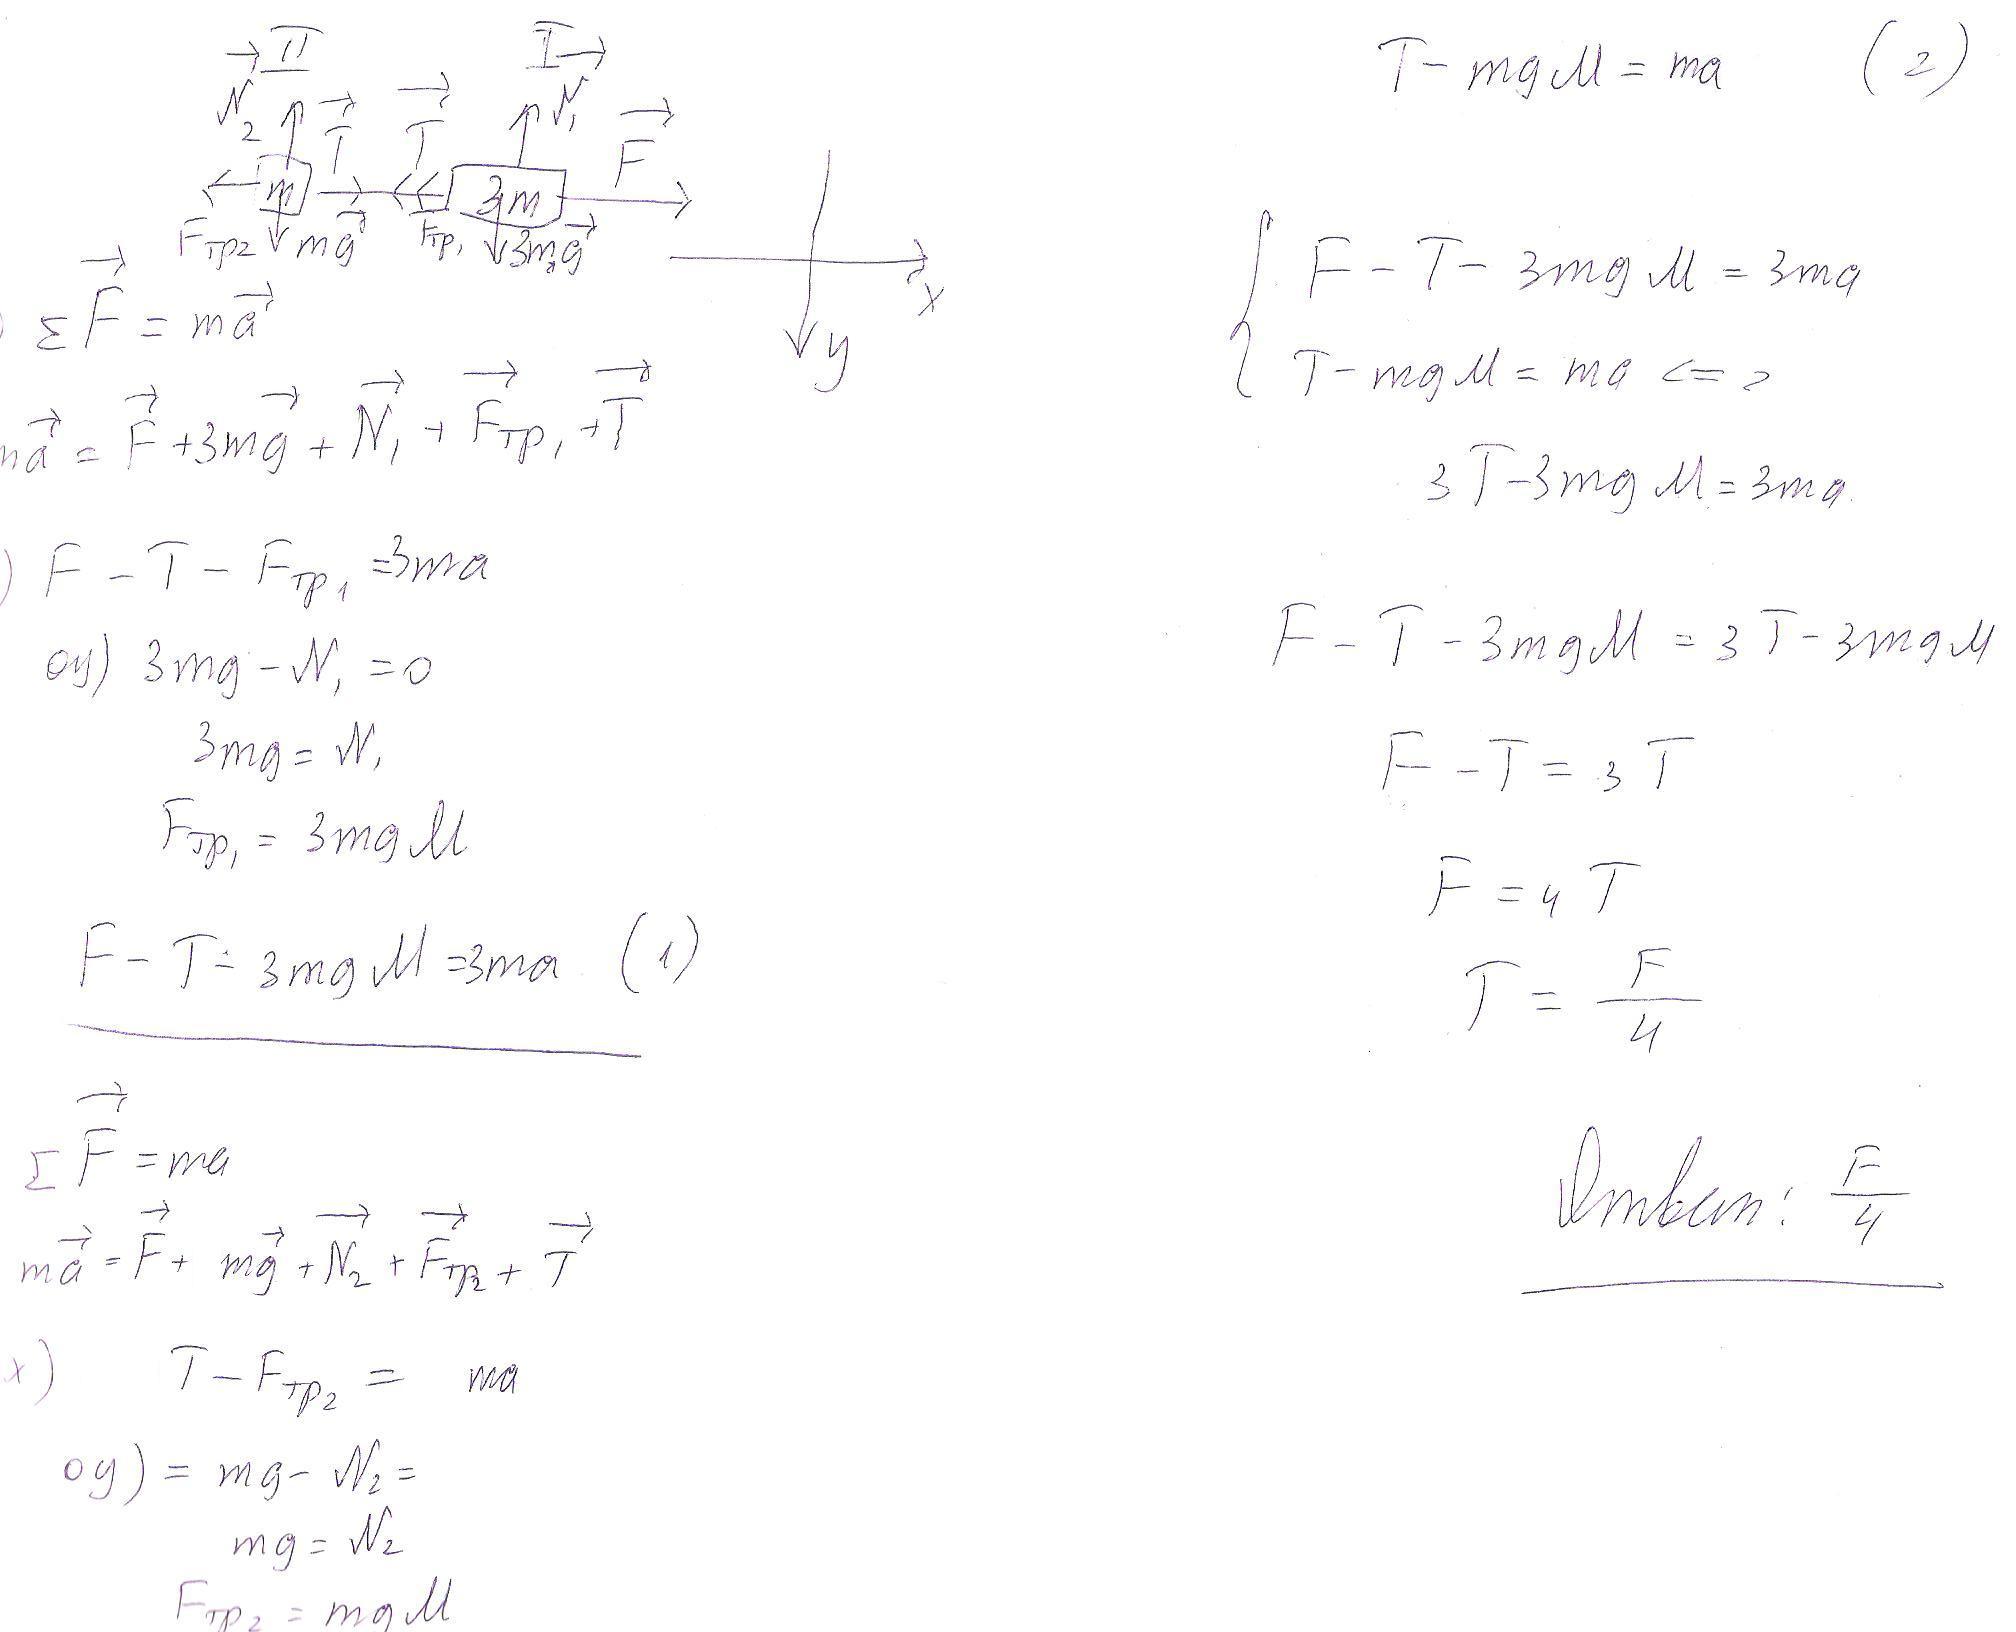 II I
N₂ T T N₁ F
m 3m
Fтр₂ mg Fтр₁ 3mg
x
y
ΣF = ma
ma = F + 3mg + N₁ + Fтр₁ + T
) F - T - Fтр₁ = 3ma
oy) 3mg - N₁ = 0
3mg = N₁
Fтр₁ = 3mgM
F - T - 3mgM = 3ma (1)
ΣF = ma
ma = F + mg + N₂ + Fтр₂ + T
x) T - Fтр₂ = ma
oy) = mg - N₂ =
mg = N₂
Fтр₂ = mgM
T - mgM = ma (2)
{ F - T - 3mgM = 3ma
T - mgM = ma <=>
3T - 3mgM = 3ma
F - T - 3mgM = 3T - 3mgM
F - T = 3T
F = 4T
T = F/4
Ответ: F/4